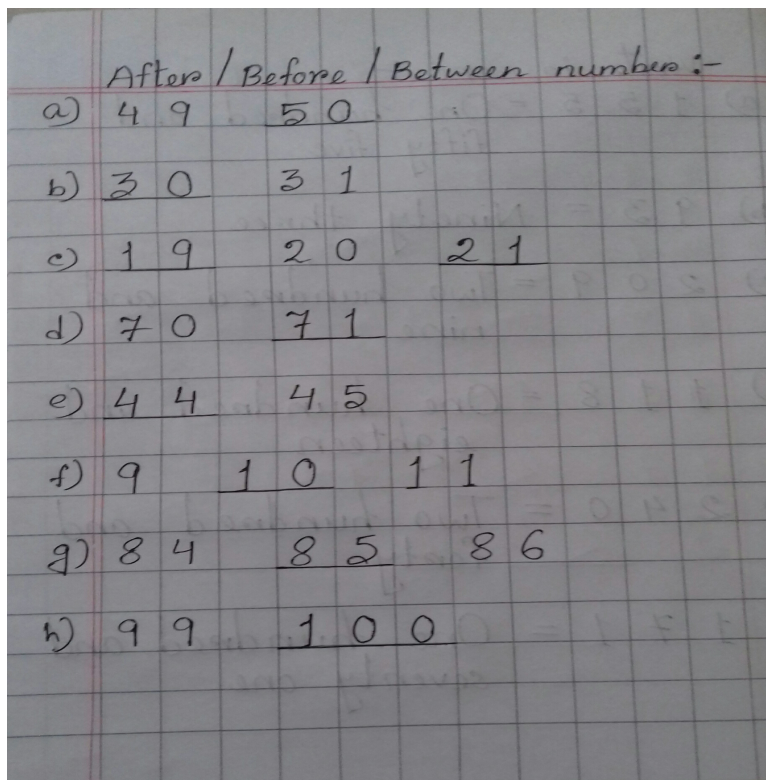 After / Before / Between number :-
a) 49 50
b) 30 31
c) 19 20 21
d) 70 71
e) 44 45
f) 9 10 11
g) 84 85 86
h) 99 100